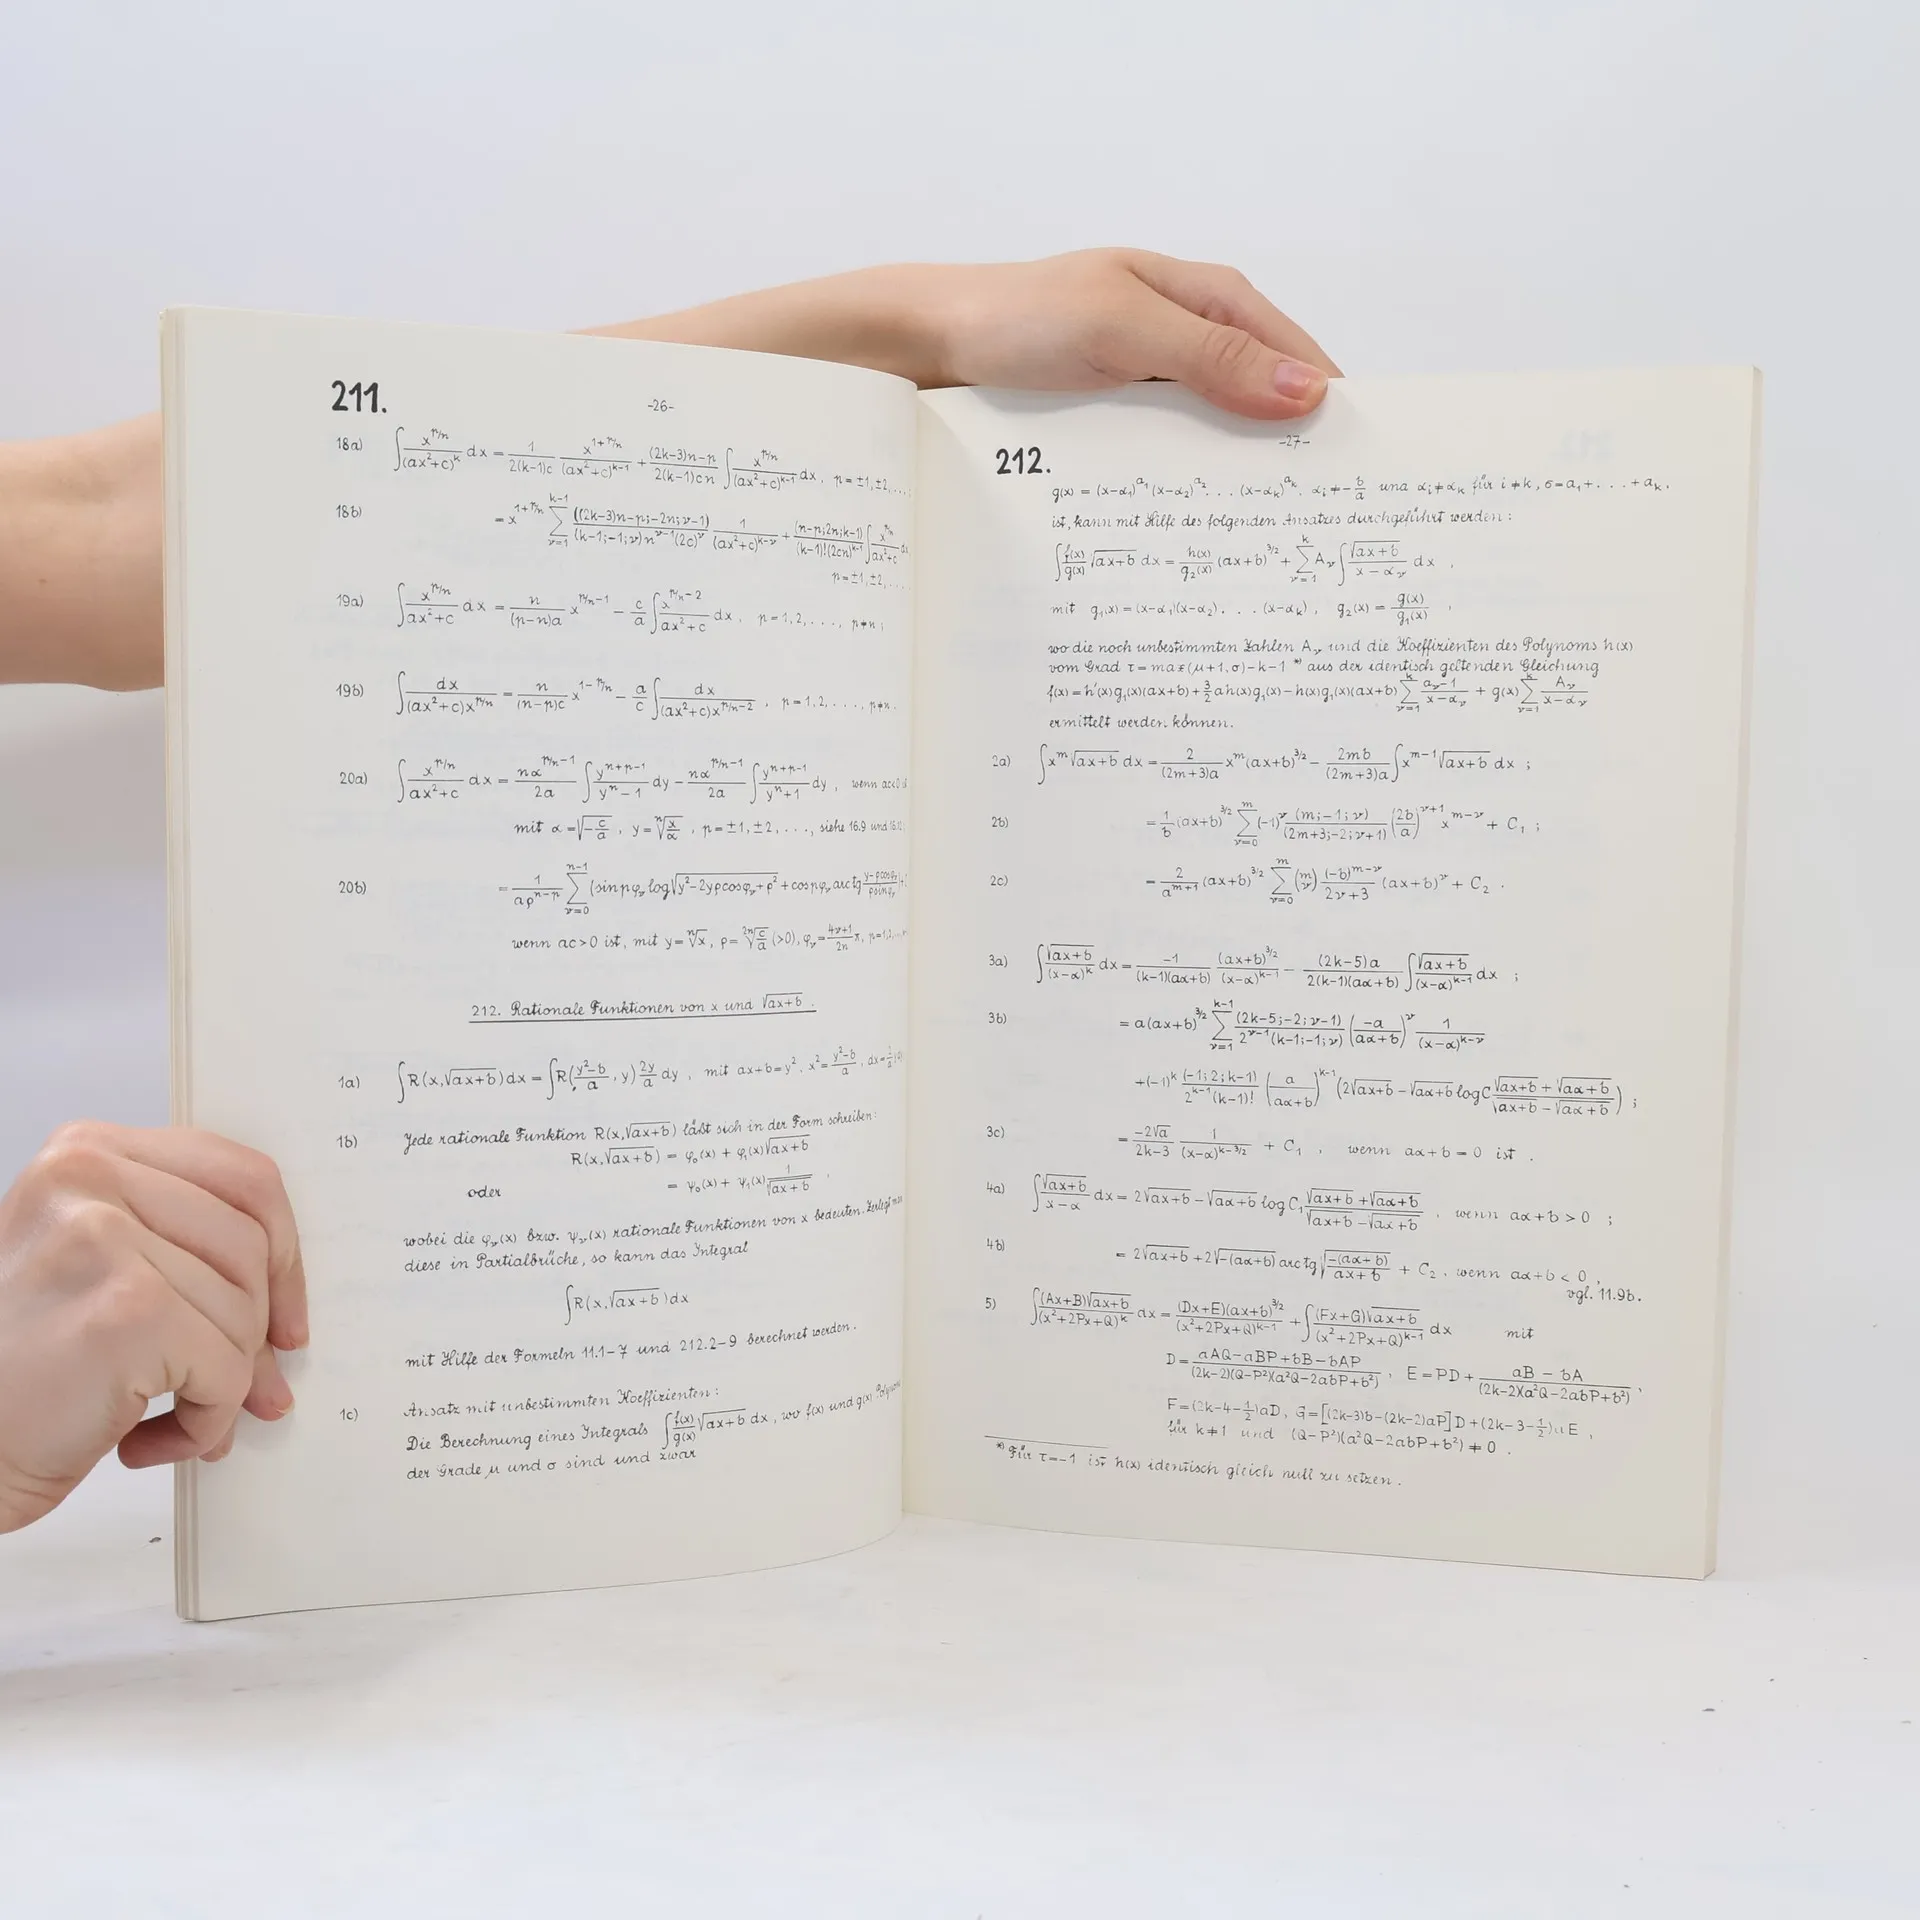 211.
-26-
18a) ∫ x^{p/n}/(ax²+c)^k dx = 1/(2(k-1)c) x^{1+p/n}/(ax²+c)^{k-1} + ((2k-3)n-p)/(2(k-1)cn) ∫ x^{p/n}/(ax²+c)^{k-1} dx, p=±1,±2,...;
18b) = x^{1+p/n} Σ_{ν=1}^{k-1} ((2k-3)n-p;-2n;ν-1)/((k-1;-1;ν)n^{ν-1}(2c)^ν) 1/(ax²+c)^{k-ν} + (n-p;2n;k-1)/((k-1)!(2cn)^{k-1}) ∫ x^{p/n}/(ax²+c) dx
p=±1,±2,....
19a) ∫ x^{p/n}/(ax²+c) dx = n/((p-n)a) x^{p/n-1} - c/a ∫ x^{p/n-2}/(ax²+c) dx, p=1,2,..., p≠n;
19b) ∫ dx/((ax²+c)x^{p/n}) = n/((n-p)c) x^{1-p/n} - a/c ∫ dx/((ax²+c)x^{p/n-2}), p=1,2,..., p≠n.
20a) ∫ x^{p/n}/(ax²+c) dx = nα^{p/n-1}/2a ∫ y^{n+p-1}/(y^n-1) dy - nα^{p/n-1}/2a ∫ y^{n+p-1}/(y^n+1) dy, wenn ac<0
mit α=√(-c/a), y=ⁿ√(x/α), p=±1,±2,..., siehe 16.9 und
20b) = 1/(aρ^{n-p}) Σ_{ν=0}^{n-1} (sin pφ_ν log√(y²-2yρcosφ_ν+ρ²) + cos pφ_ν arctg (y-ρcosφ_ν)/(ρsinφ_ν))
wenn ac>0 ist, mit y=ⁿ√x, ρ=²ⁿ√(c/a) (>0), φ_ν=(4ν+1)/2n π, p=1,2,...
212. Rationale Funktionen von x und √(ax+b).
1a) ∫R(x,√(ax+b))dx = ∫R((y²-b)/a, y) 2y/a dy, mit ax+b=y², x²=(y²-b)/a, dx=
1b) Jede rationale Funktion R(x,√(ax+b)) läßt sich in der Form schreiben:
R(x,√(ax+b)) = φ₀(x) + φ₁(x)√(ax+b)
oder = ψ₀(x) + ψ₁(x) 1/√(ax+b),
wobei die φ_ν(x) bzw. ψ_ν(x) rationale Funktionen von x bedeuten. Zerlegt man
diese in Partialbrüche, so kann das Integral
∫R(x,√(ax+b))dx
mit Hilfe der Formeln 11.1-7 und 212.2-9 berechnet werden.
1c) Ansatz mit unbestimmten Koeffizienten:
Die Berechnung eines Integrals ∫ f(x)/g(x) √(ax+b) dx, wo f(x) und g(x) Polynome
der Grade μ und σ sind und zwar
-27-
212.
g(x) = (x-α₁)^{a₁}(x-α₂)^{a₂}...(x-α_k)^{a_k}. α_i≠-b/a und α_i≠α_k für i≠k, σ=a₁+...+a_k.
ist, kann mit Hilfe des folgenden Ansatzes durchgeführt werden:
∫ f(x)/g(x) √(ax+b) dx = h(x)/g₂(x) (ax+b)^{3/2} + Σ_{ν=1}^{k} A_ν ∫ √(ax+b)/(x-α_ν) dx,
mit g₁(x)=(x-α₁)(x-α₂)...(x-α_k), g₂(x)=g(x)/g₁(x),
wo die noch unbestimmten Zahlen A_ν und die Koeffizienten des Polynoms h(x)
vom Grad τ=max(μ+1,σ)-k-1 *) aus der identisch geltenden Gleichung
f(x)=h'(x)g₁(x)(ax+b)+3/2 ah(x)g₁(x)-h(x)g₁(x)(ax+b) Σ_{ν=1}^{k} (a_ν-1)/(x-α_ν) + g(x) Σ_{ν=1}^{k} A_ν/(x-α_ν)
ermittelt werden können.
2a) ∫x^m √(ax+b) dx = 2/((2m+3)a) x^m (ax+b)^{3/2} - 2mb/((2m+3)a) ∫x^{m-1} √(ax+b) dx;
2b) = 1/b (ax+b)^{3/2} Σ_{ν=0}^{m} (-1)^ν (m;-1;ν)/(2m+3;-2;ν+1) (2b/a)^{ν+1} x^{m-ν} + C₁;
2c) = 2/a^{m+1} (ax+b)^{3/2} Σ_{ν=0}^{m} (m ν) (-b)^{m-ν}/(2ν+3) (ax+b)^ν + C₂.
3a) ∫ √(ax+b)/(x-α)^k dx = -1/((k-1)(aα+b)) (ax+b)^{3/2}/(x-α)^{k-1} - (2k-5)a/(2(k-1)(aα+b)) ∫ √(ax+b)/(x-α)^{k-1} dx;
3b) = a(ax+b)^{3/2} Σ_{ν=1}^{k-1} (2k-5;-2;ν-1)/(2^{ν-1}(k-1;-1;ν)) (-a/(aα+b))^ν 1/(x-α)^{k-ν}
+(-1)^k (-1;2;k-1)/(2^{k-1}(k-1)!) (a/(aα+b))^{k-1} (2√(ax+b) - √(aα+b) log C (√(ax+b)+√(aα+b))/(√(ax+b)-√(aα+b)));
3c) = -2√a/(2k-3) 1/(x-α)^{k-3/2} + C₁, wenn aα+b=0 ist.
4a) ∫ √(ax+b)/(x-α) dx = 2√(ax+b) - √(aα+b) log C₁ (√(ax+b)+√(aα+b))/(√(ax+b)-√(aα+b)), wenn aα+b>0;
4b) = 2√(ax+b) + 2√(-(aα+b)) arctg √(-(aα+b)/(ax+b)) + C₂, wenn aα+b<0,
vgl. 11.9b.
5) ∫ (Ax+B)√(ax+b)/(x²+2Px+Q)^k dx = (Dx+E)(ax+b)^{3/2}/(x²+2Px+Q)^{k-1} + ∫ (Fx+G)√(ax+b)/(x²+2Px+Q)^{k-1} dx mit
D=(aAQ-aBP+bB-bAP)/((2k-2)(Q-P²)(a²Q-2abP+b²)), E=PD+(aB-bA)/((2k-2)(a²Q-2abP+b²)),
F=(2k-4-1/2)aD, G=[(2k-3)b-(2k-2)aP]D+(2k-3-1/2)aE,
für k≠1 und (Q-P²)(a²Q-2abP+b²)≠0.
*) Für τ=-1 ist h(x) identisch gleich null zu setzen.